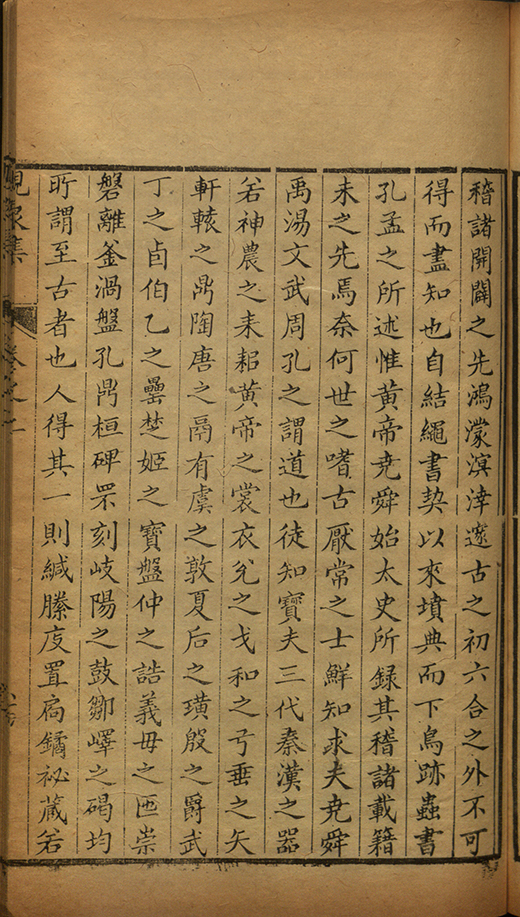 稽諸開闢之先鴻濛溟涬邃古之初六合之外不可
得而盡知也自結繩書契以來墳典而下鳥跡蟲書
孔孟之所述惟黃帝堯舜始太史所録其稽諸載籍
未之先焉奈何世之嗜古厭常之士鮮知求夫堯舜
禹湯文武周孔之謂道也徒知寶夫三代秦漢之器
若神農之耒耜黃帝之裳衣兊之戈和之弓垂之矢
軒轅之鼎陶唐之鬲有虞之敦夏后之璜殷之爵武
丁之卣伯乙之罍楚姬之寶盤仲之誥義母之匜崇
磬離釜渦盤孔鼎桓碑罘刻岐陽之鼓鄒嶧之碣均
所謂至古者也人得其一則緘縢庋置扃鐍祕藏若